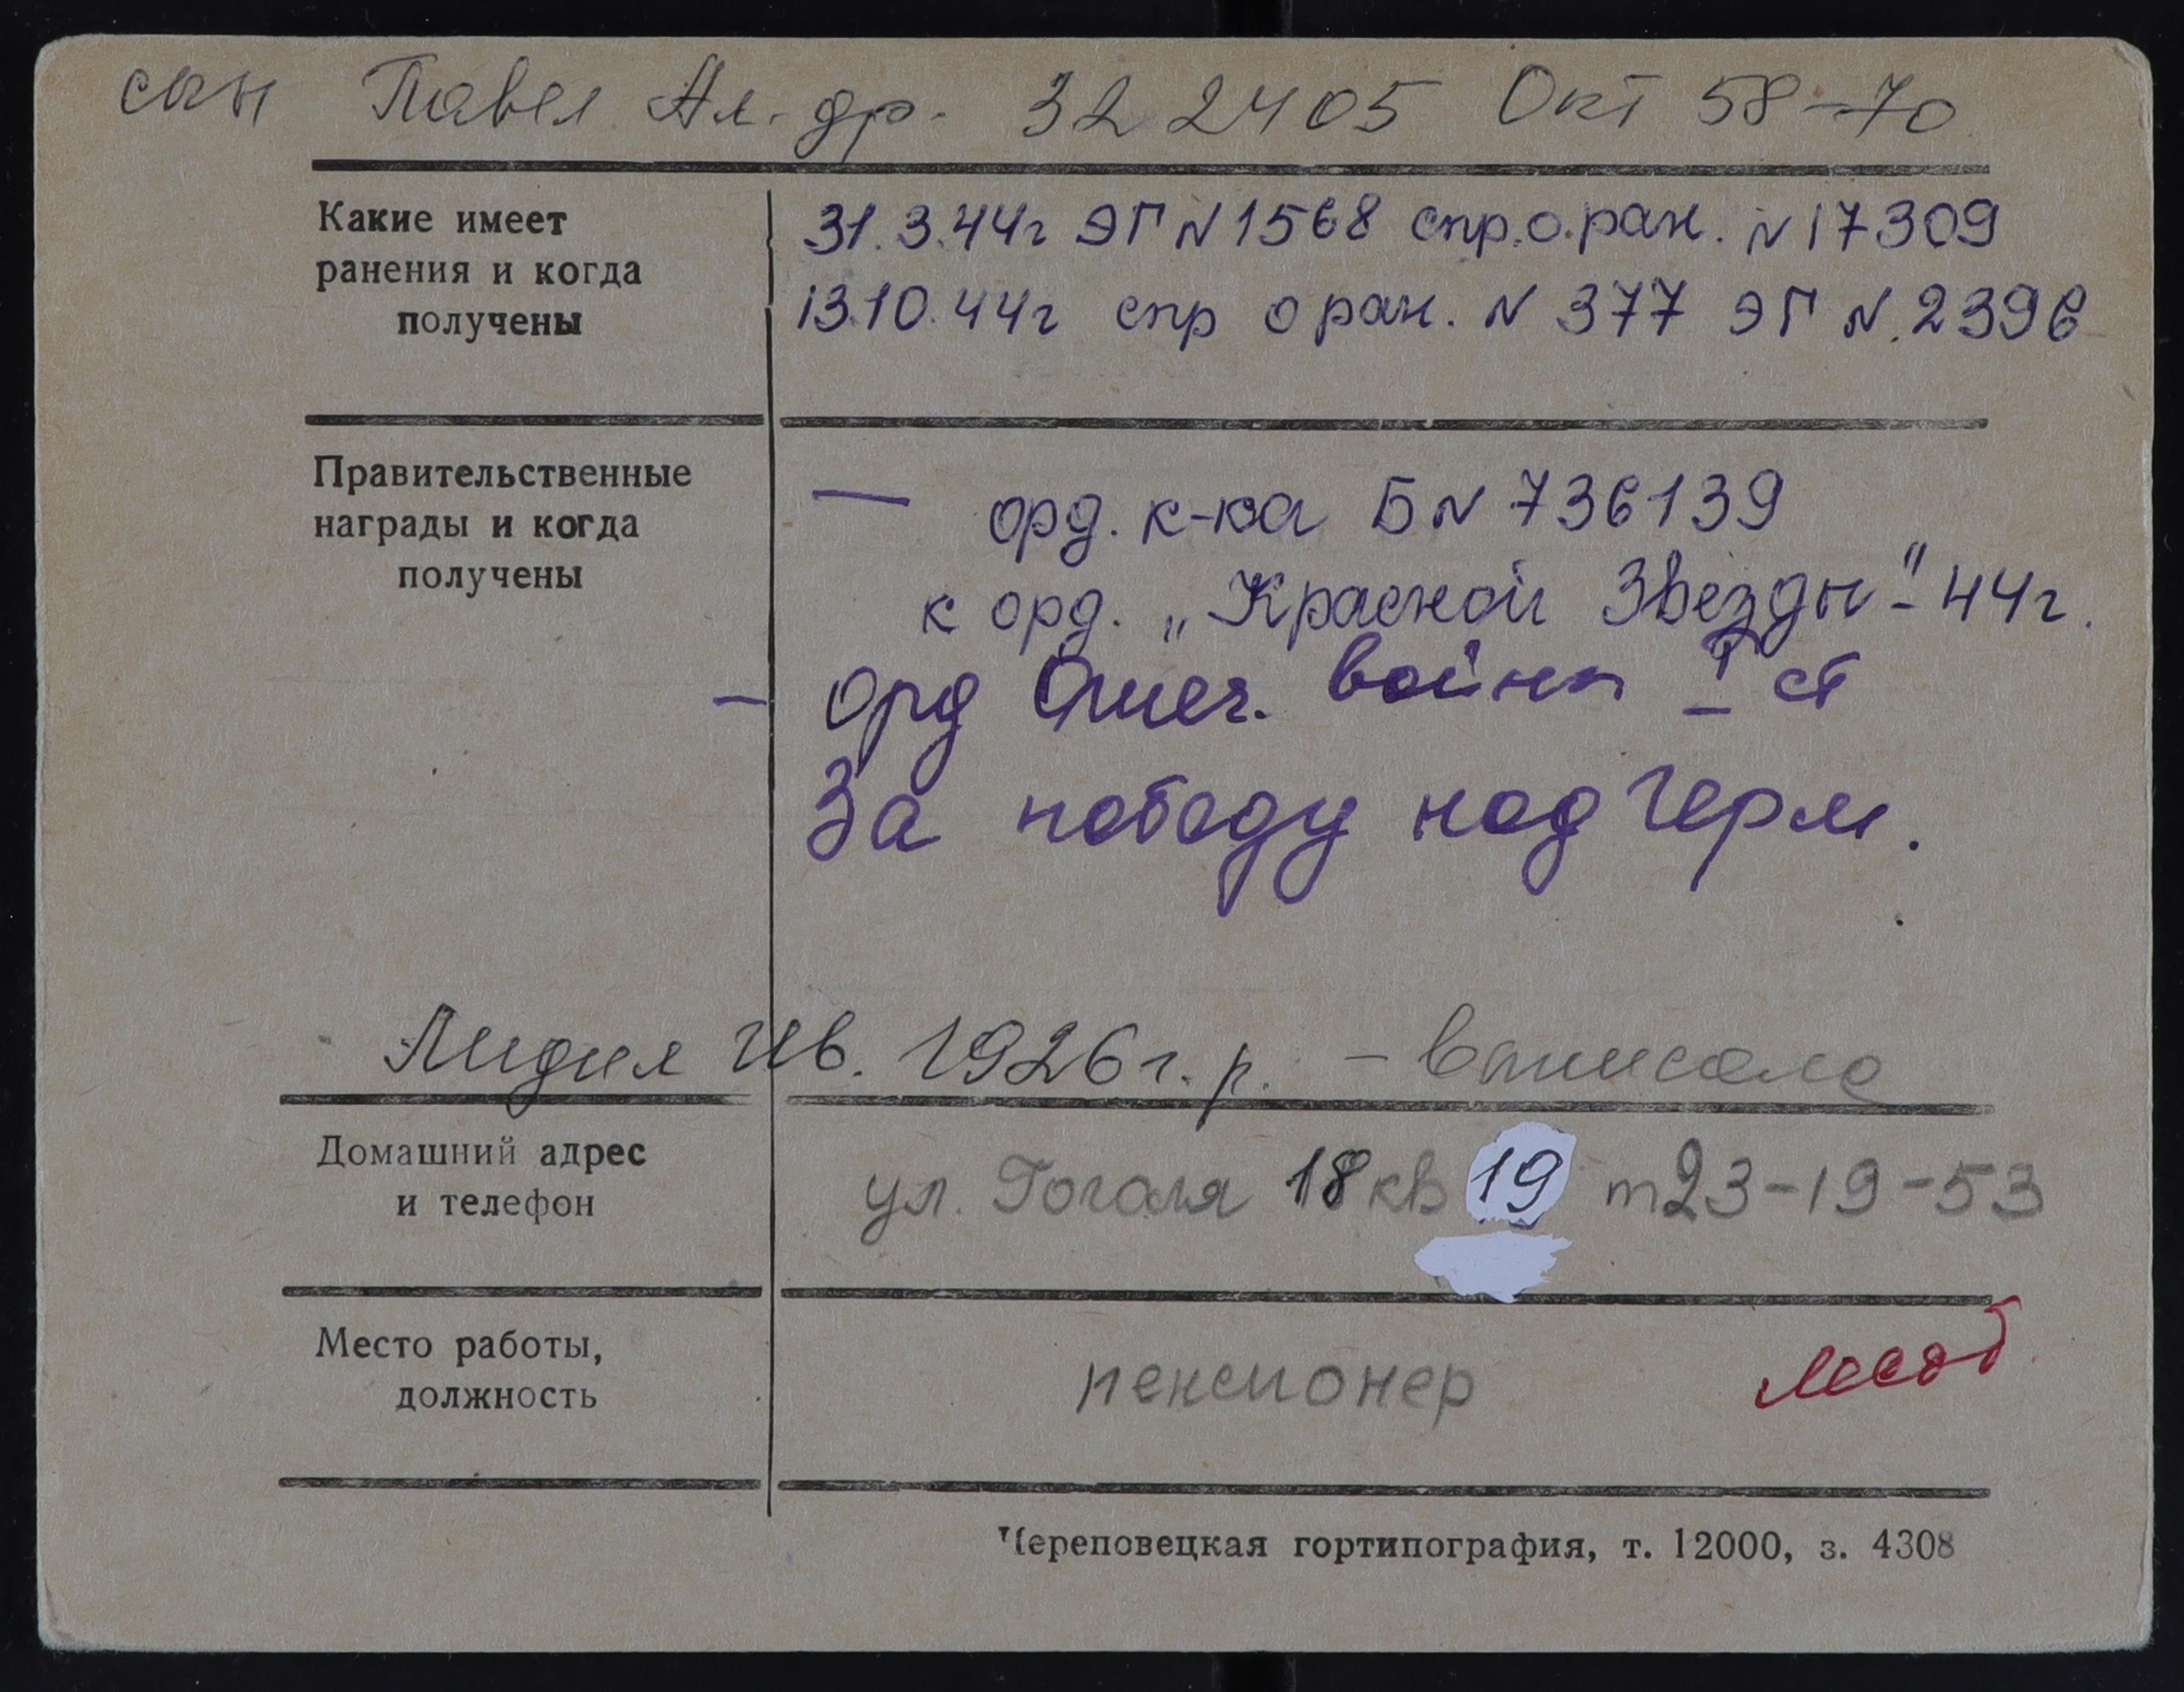 сын Павел Ал-др. 32 24 05 Окт 58-70
Какие имеет
ранения и когда
получены
31.3.44г ЭГ N 1568 спр.о.ран. N 17309
13.10.44г спр о ран. N 377 ЭГ N 2396
Правительственные
награды и когда
получены
— орд. к-ка Б N 736139
к орд. „Красной Звезды" - 44г.
— Орд Отеч. войны I ст
За победу над Герм.
Лидия Ив. 1926 г.р. - выписала
Домашний адрес
и телефон
ул. Гоголя 18 кв 19 т 23-19-53
Место работы,
должность
пенсионер
Череповецкая гортипография, т. 12000, з. 4308